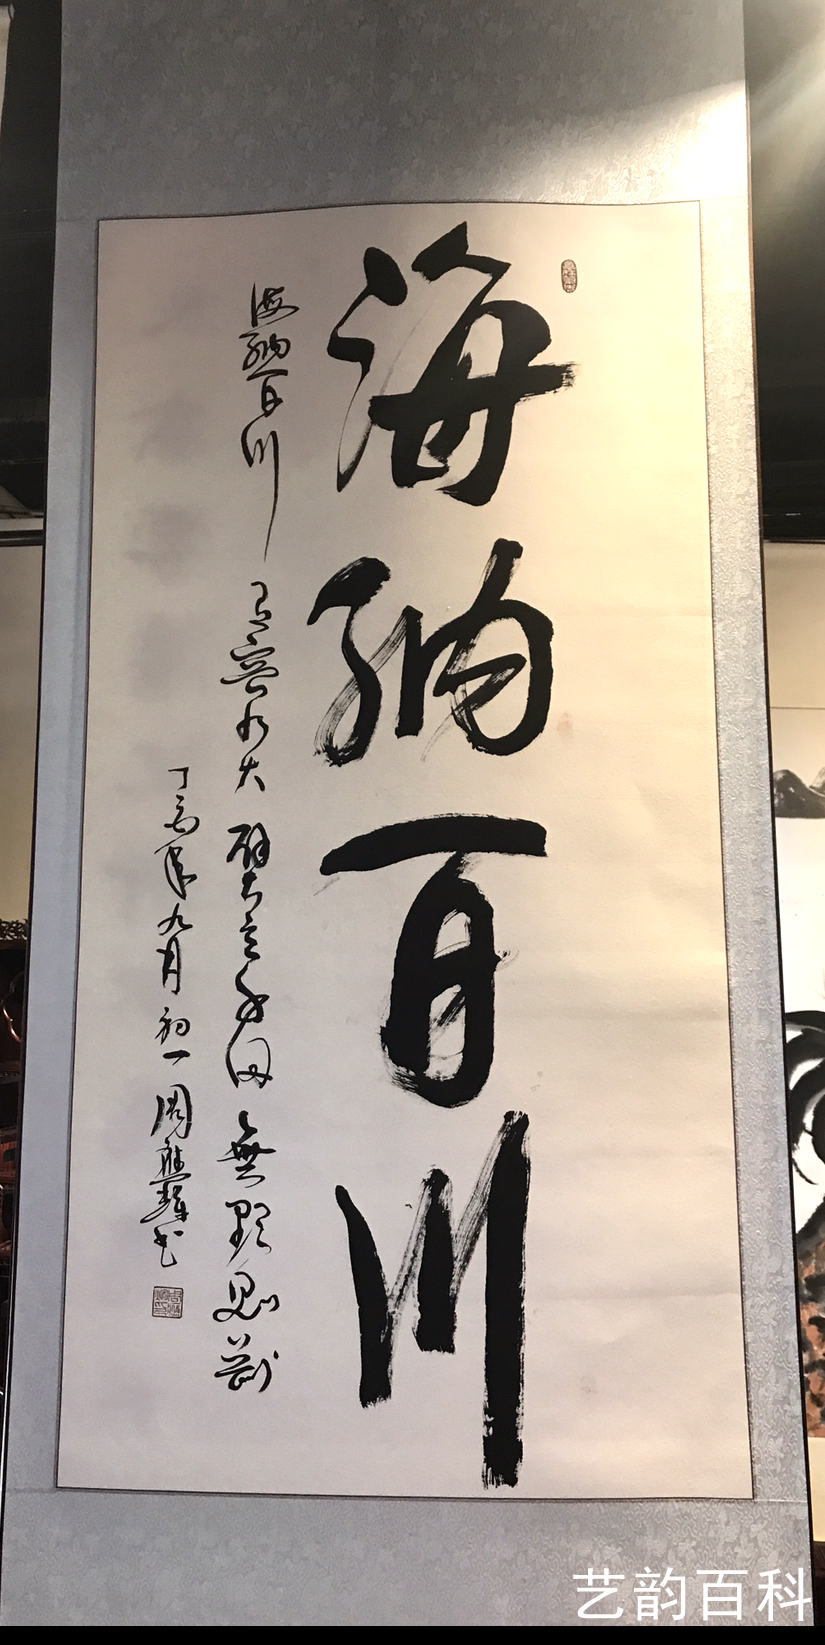 海納百川
海納百川有容乃大壁立千仞無欲則剛
丁亥年九月初一周書
艺韵百科